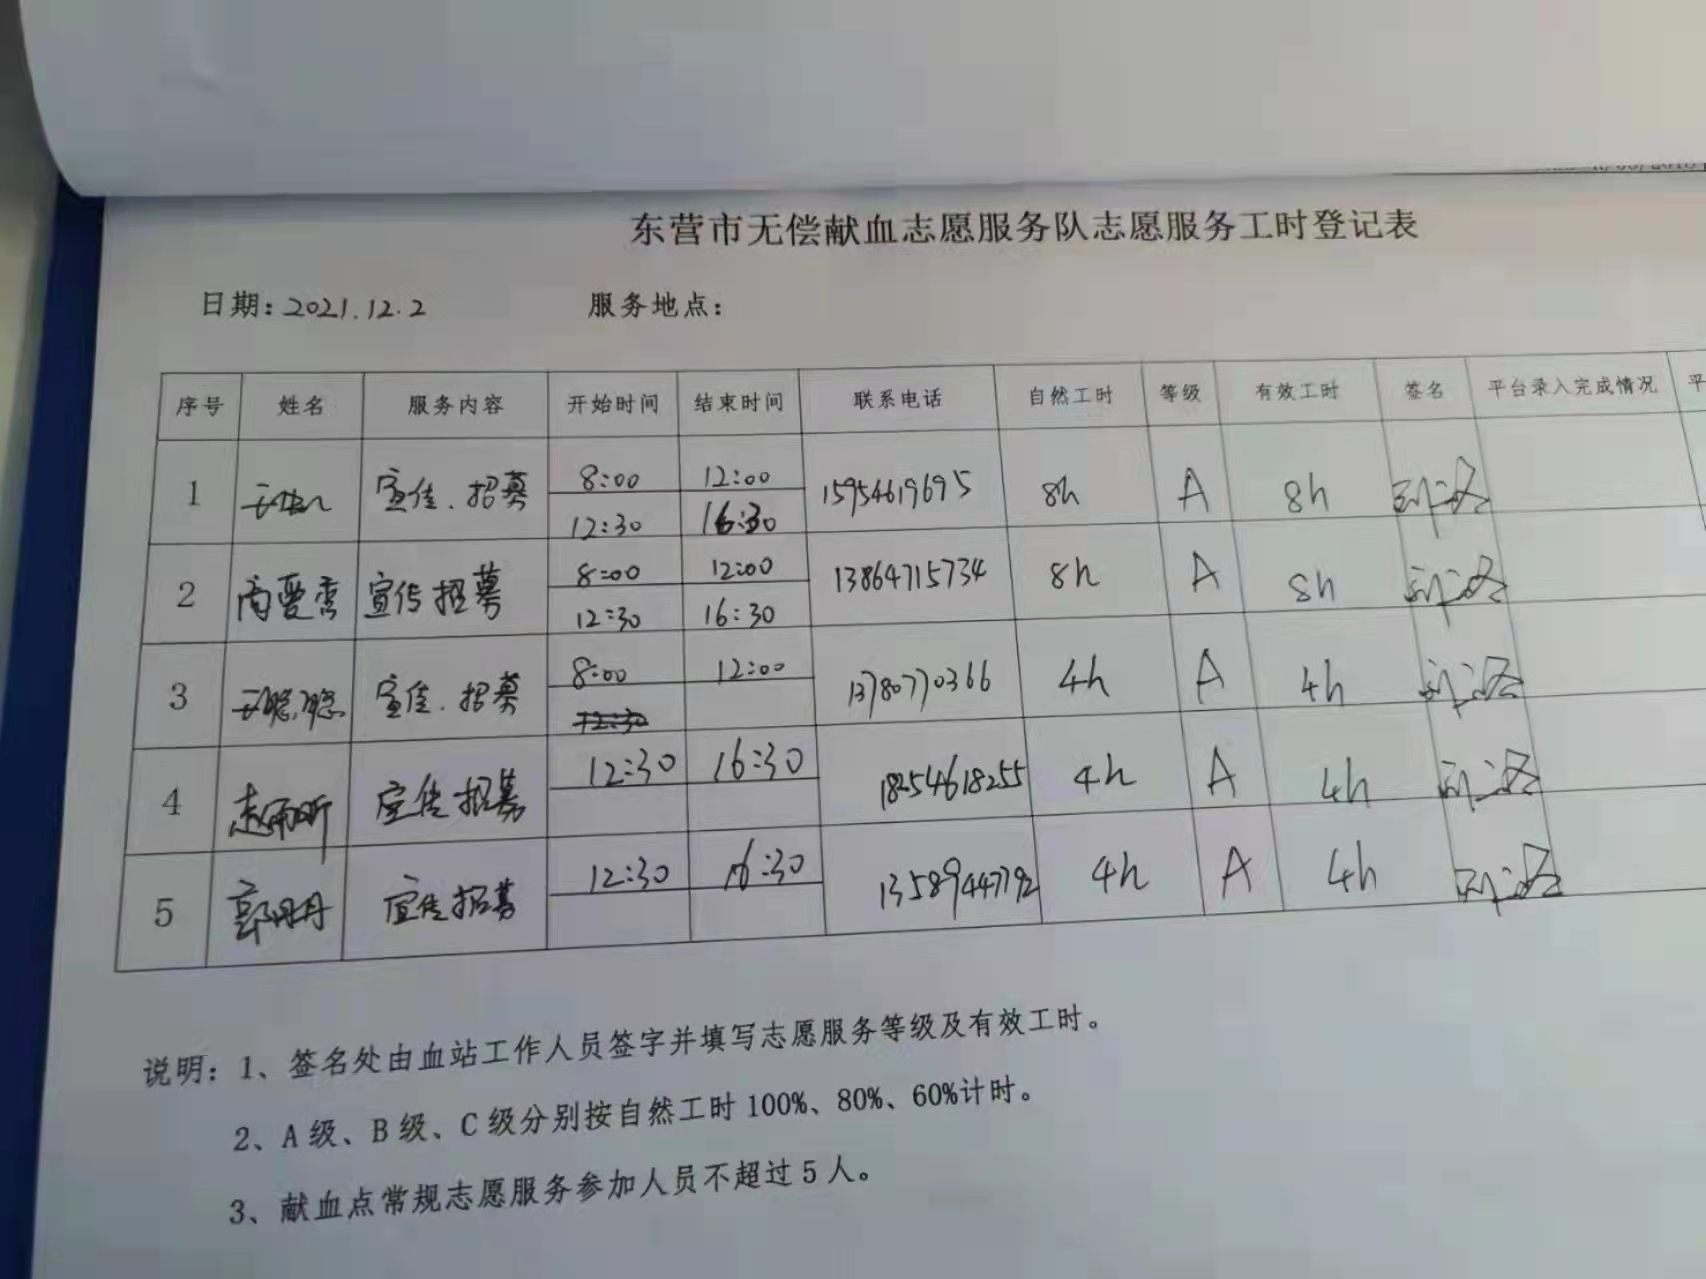 东营市无偿献血志愿服务队志愿服务工时登记表
日期：2021.12.2 服务地点：
序号 姓名 服务内容 开始时间 结束时间 联系电话 自然工时 等级 有效工时 签名 平台录入完成情况 平
1 宣传.招募 8:00 12:00 15954619695 8h A 8h
12:30 16:30
2 宣传招募 8:00 12:00 13864715734 8h A 8h
12:30 16:30
3 宣传.招募 8:00 12:00 13780770366 4h A 4h
12:30
4 宣传招募 12:30 16:30 18254618255 4h A 4h
5 郭丹丹 宣传招募 12:30 16:30 13589447792 4h A 4h
说明：1、签名处由血站工作人员签字并填写志愿服务等级及有效工时。
2、A级、B级、C级分别按自然工时100%、80%、60%计时。
3、献血点常规志愿服务参加人员不超过5人。